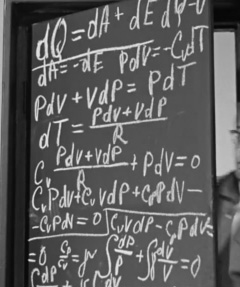 dQ = dA + dE dQ=0
dA = -dE pdV = -CvdT
pdV + Vdp = RdT
dT = pdV+Vdp / R
Cv pdV+Vdp / R + pdV = 0
CvpdV + CvVdp + CppdV -
- CvpdV = 0 CvVdp - CppdV=
= 0 Cp/Cv = γ ∫dp/p + ∫γdV/V = 0